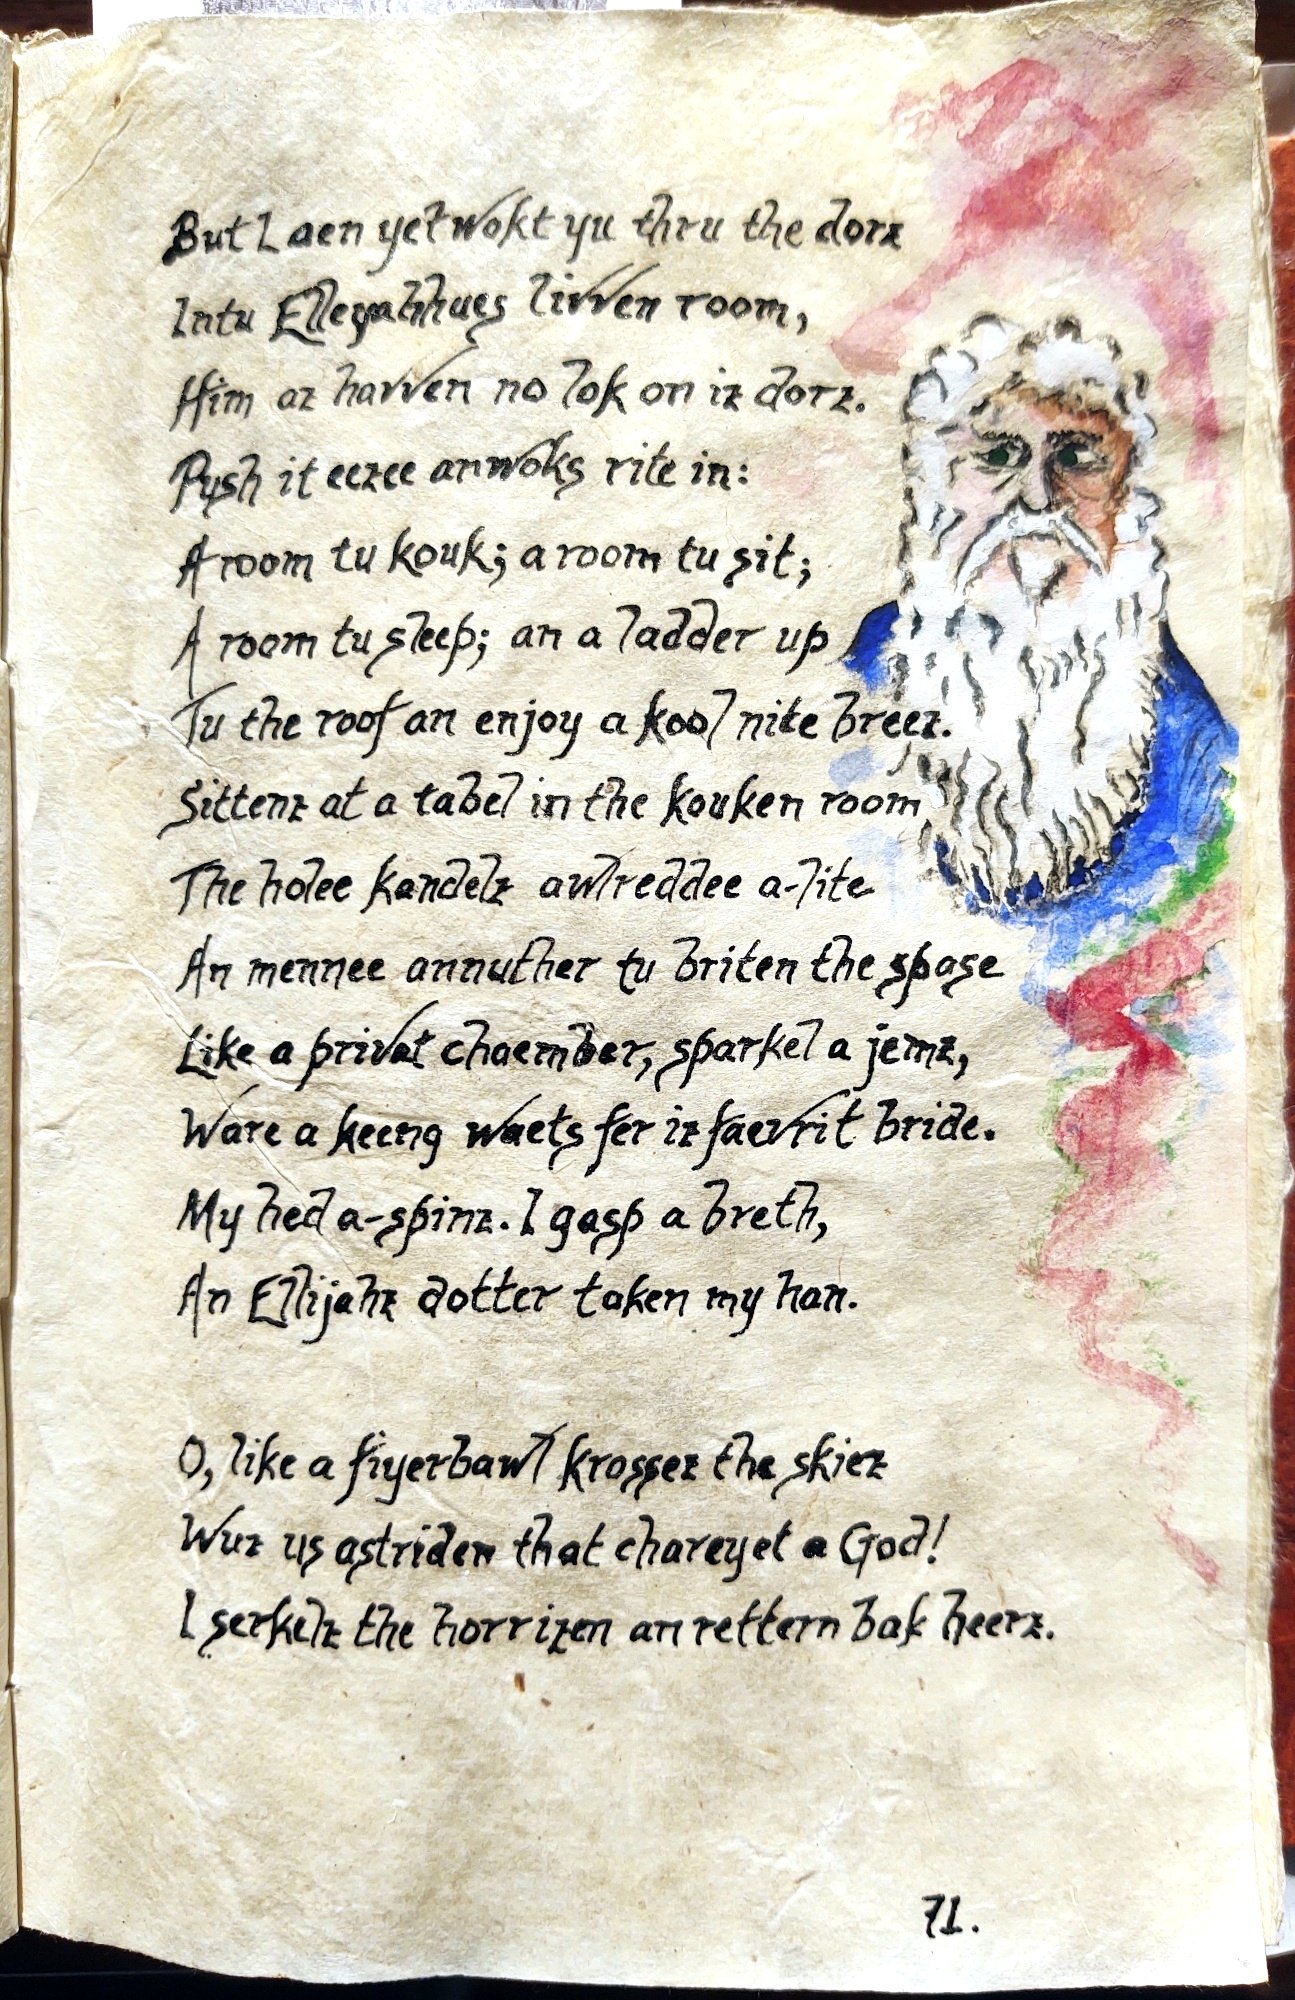 But I aen yet wokt yu thru the dorz
Intu Elleyahhuez livven room,
Him az havven no lok on iz dorz.
Pysh it eezee an woks rite in:
A room tu kouk; a room tu sit;
A room tu sleep; an a ladder up
Tu the roof an enjoy a kool nite breez.
Sittenz at a tabel in the kouken room
The holee kandelz awlreddee a-lite
An mennee annuther tu briten the spase
Like a privat chaember, sparkel a jemz,
Ware a keeng waets fer iz faevrit bride.
My hed a-spinz. I gasp a breth,
An Ellijahz dotter taken my han.
O, like a fiyerbawl krossez the skiez
Wuz us astriden that chareyet a God!
I serkelz the horrizen an rettern bak heerz.
71.